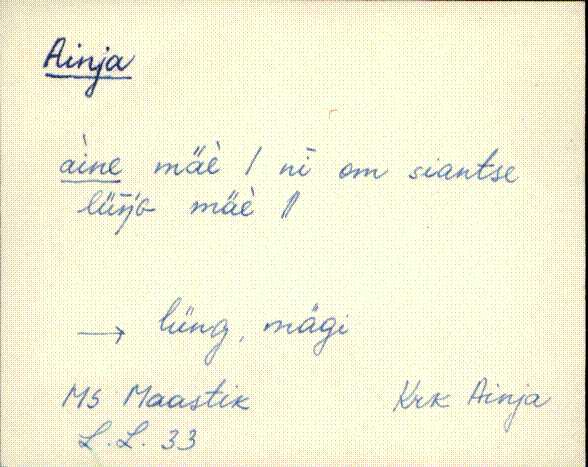 Ainja
àine mäè / nī om siantse
lüŋ̄G mäè //
→ lüng, mägi
Ms Maastik Krk Ainja
L.L. 33